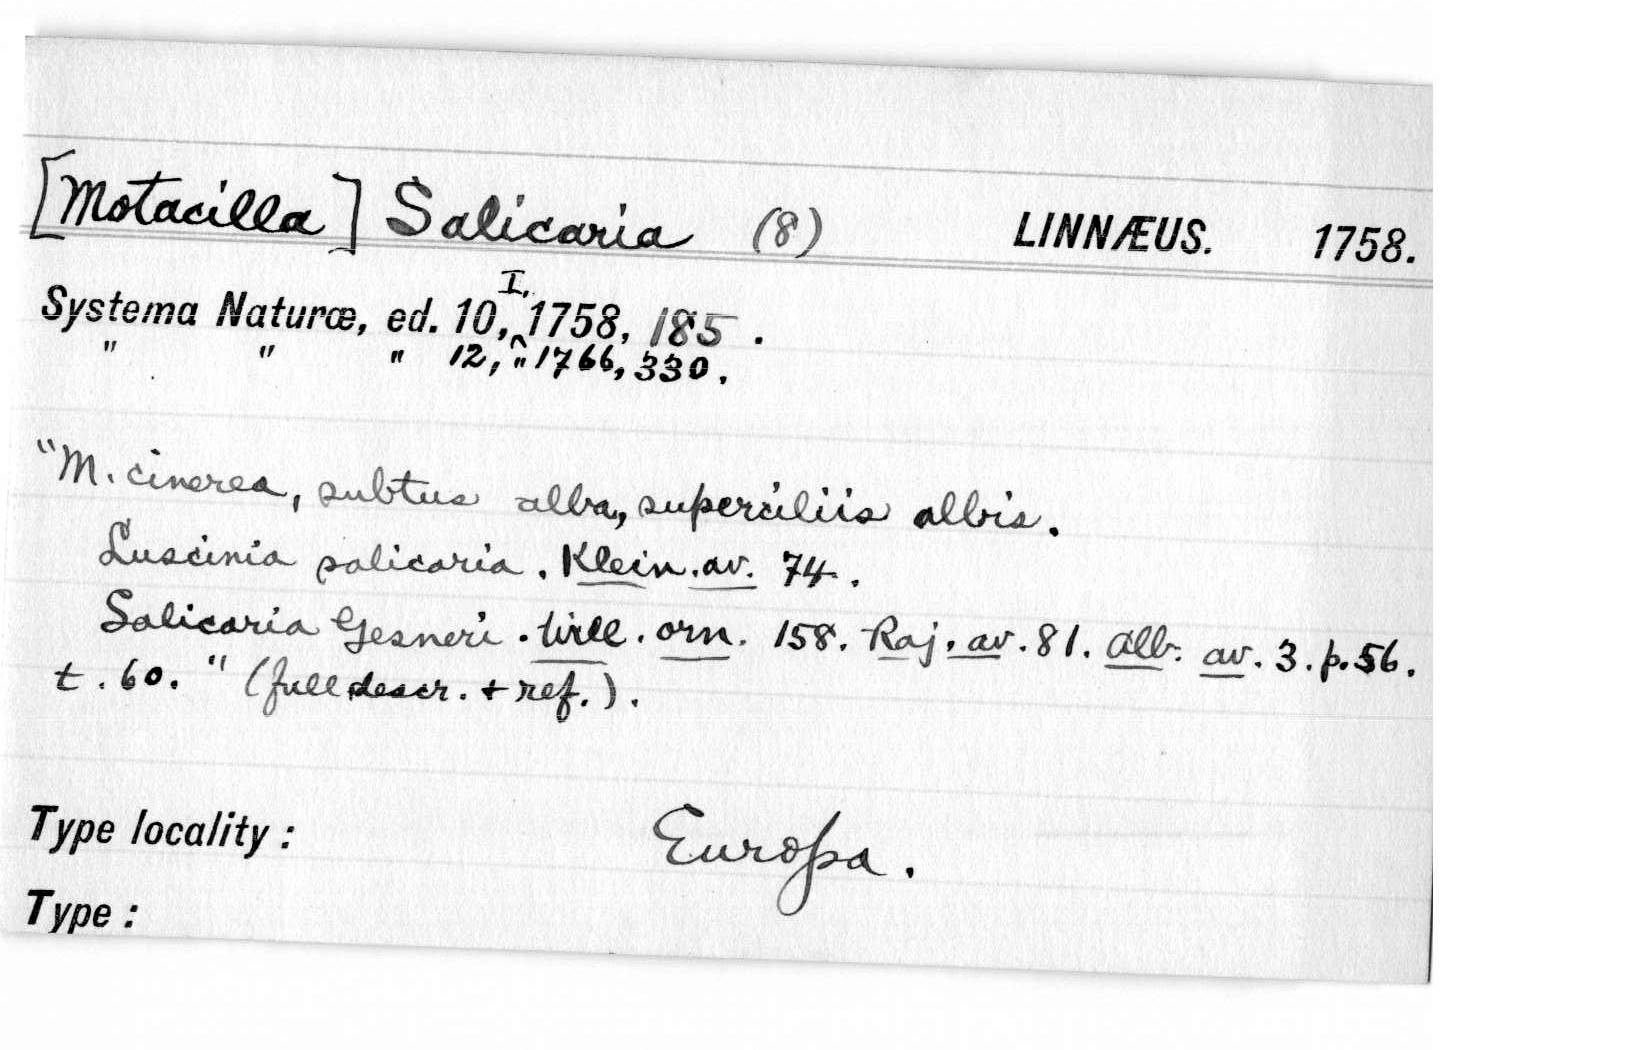 [Motacilla] Salicaria (8) LINNÆUS. 1758.
Systema Naturæ, ed. 10, I, 1758, 185.
" " " 12, " 1766, 330.
"M. cinerea, subtus alba, superciliis albis.
Luscinia salicaria. Klein. av. 74.
Salicaria Gesneri. Will. orn. 158. Raj. av. 81. Alb. av. 3. p. 56.
t. 60." (full descr. + ref.).
Type locality: Europa.
Type: